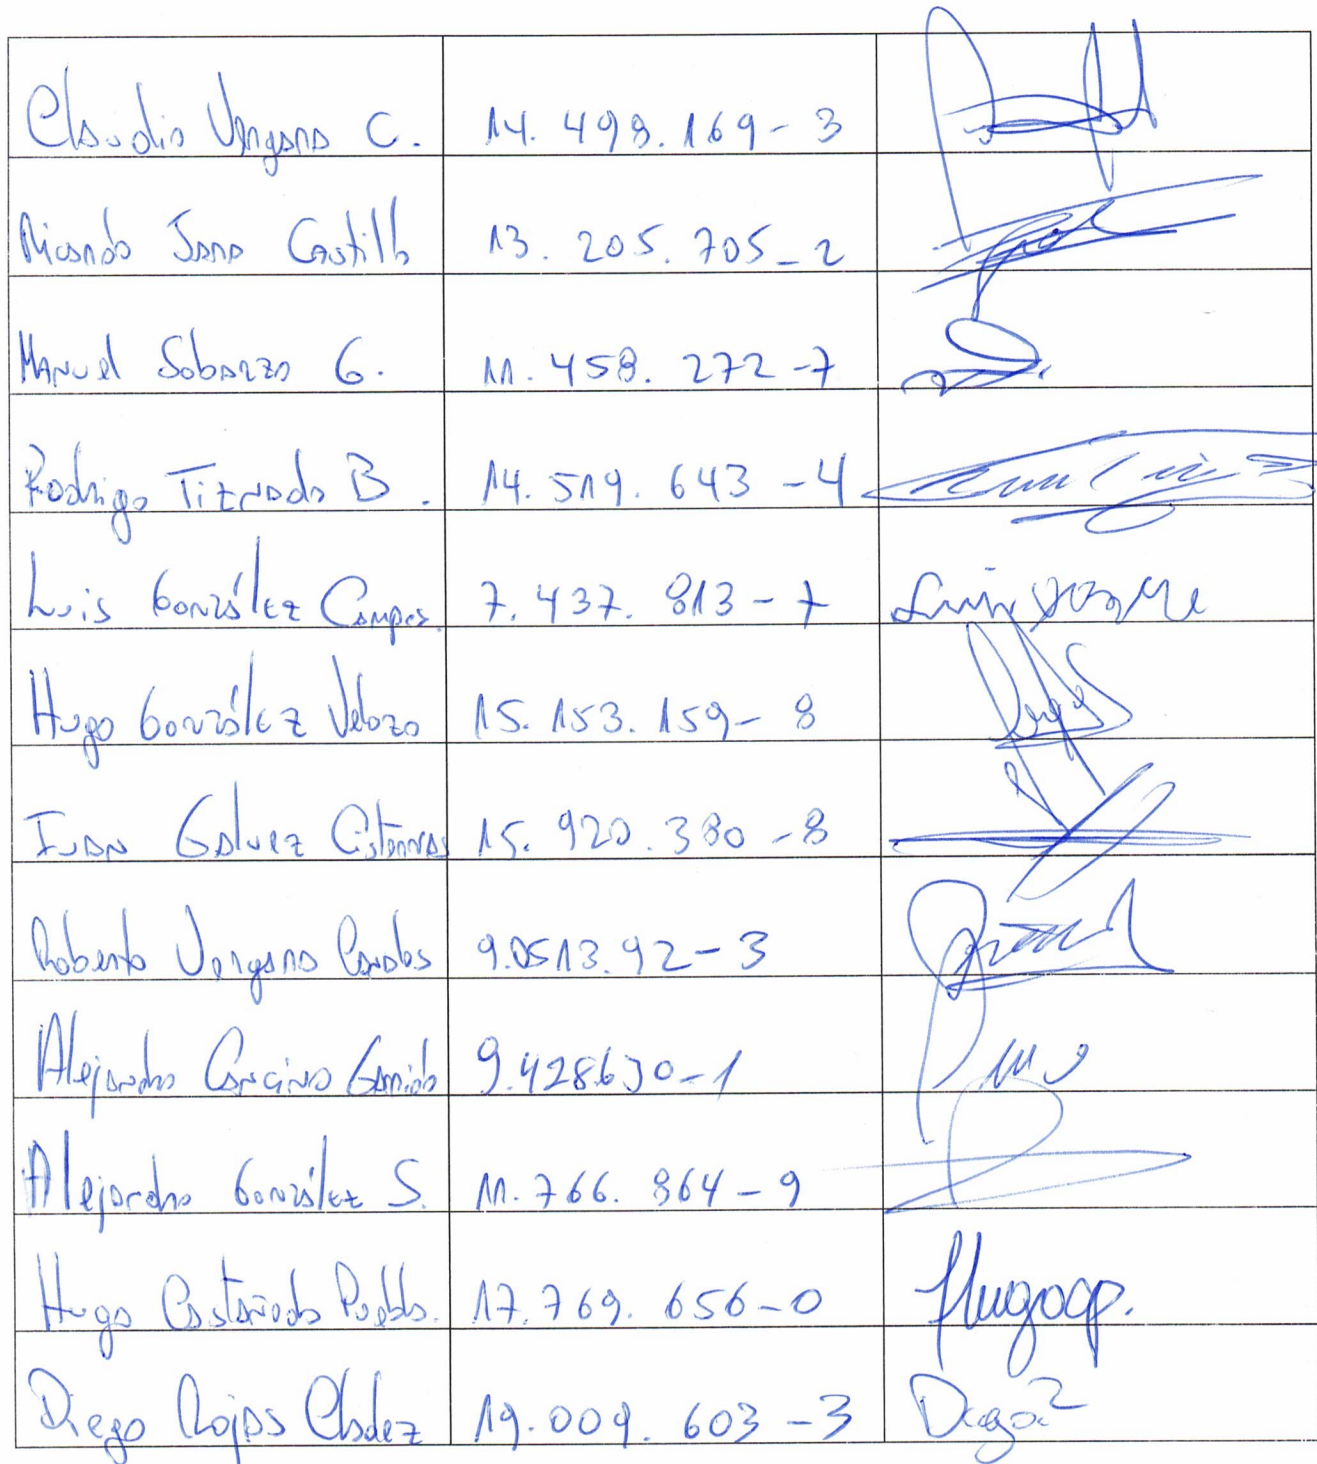 Claudio Vergara C. 14.498.169-3
Ricardo Jara Castillo 13.205.705-2
Manuel Sobarzo G. 11.458.272-7
Rodrigo Tiznado B. 14.519.643-4
Luis González Campos. 7.437.813-7 Luis
Hugo González Velozo 15.153.159-8
Ivan Galvez Cisternas 15.920.380-8
Roberto Vergara 9.0513.92-3
Alejandro Cancino Garrido 9.428630-1
Alejandro González S. 11.766.864-9
Hugo Castañeda Puebla. 17.769.656-0 Hugocp.
Diego Rojas 19.009.603-3 Diego